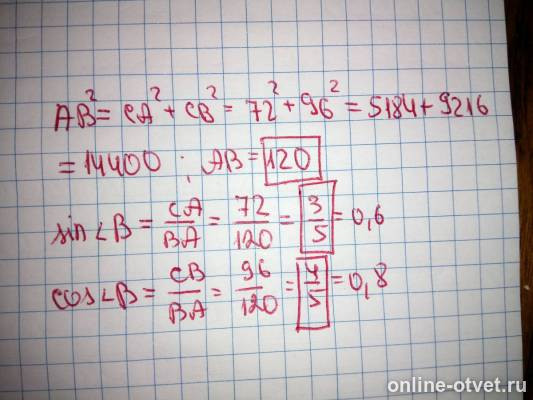 AB² = CA² + CB² = 72² + 96² = 5184 + 9216
= 14400 ; AB = 120
sin∠B = CA/BA = 72/120 = 3/5 = 0,6
cos∠B = CB/BA = 96/120 = 4/5 = 0,8
online-otvet.ru